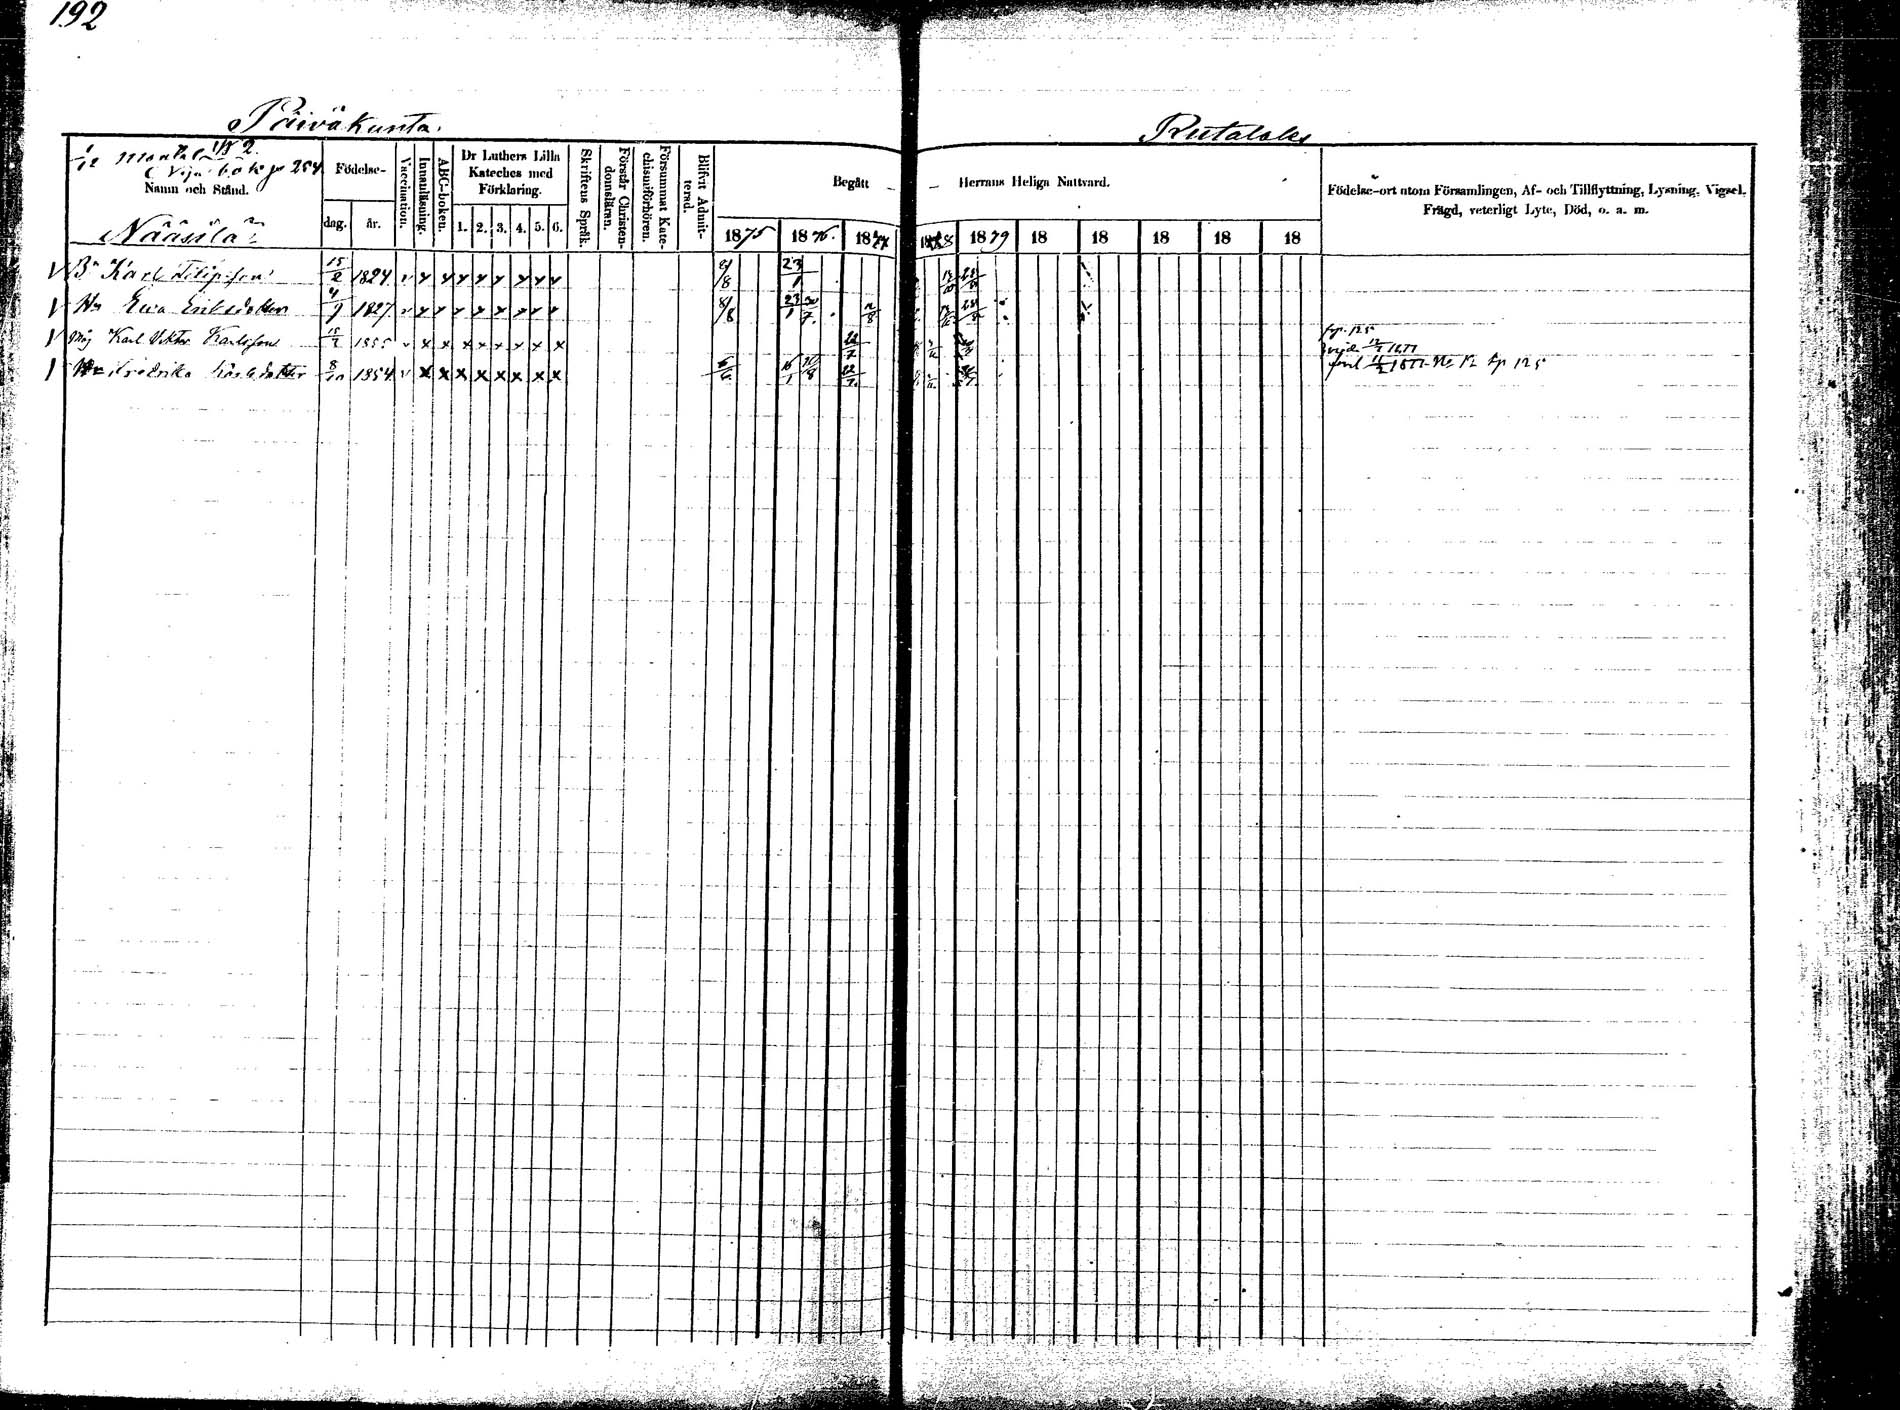 192
Päiväkunta.
Rutalaks
1/12 mantal 1/3 2.
bok p 254
Namn och Stånd.
Nääsilä
Födelse-
dag. år.
Vaccination.
Innanläsning.
ABC-boken.
Dr Luthers Lilla Kateches med Förklaring.
1. 2. 3. 4. 5. 6.
Skriftens Språk.
Förstår Christendomsläran.
Försummat Katechismiförhören.
Blifvit Admitterad.
Begått Herrans Heliga Nattvard.
1875 1876. 1877 1878 1879 18 18 18 18 18
Födelse-ort utom Församlingen, Af- och Tillflyttning, Lysning, Vigsel,
Frägd, veterligt Lyte, Död, o. a. m.
V Bn Karl Filipsson 15/2 1824 v x x x x x x x x 8/8 23/1
V Hu Eva Eriksdotter 4/9 1827 v x x x x x x x x 8/8 23/1 30/7
V Måg Karl Viktor Karlsson 15/2 1855 v x x x x x x x x 22/7 fr p. 125
Fredrika Karlsdotter 8/10 1854 v x x x x x x x x 16/1 22/7 1877 p 125